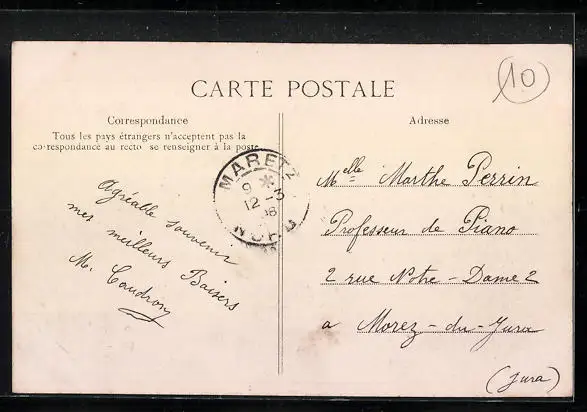 CARTE POSTALE
10
Correspondance
Tous les pays étrangers n'acceptent pas la
correspondance au recto se renseigner à la poste
Agréable souvenir
mes meilleurs Baisers
M. Caudron
MARETZ
9 *
12 - 3
06
NORD
Adresse
Melle Marthe Perrin
Professeur de Piano
2 rue Notre-Dame 2
a Morez-du-Jura
(Jura)